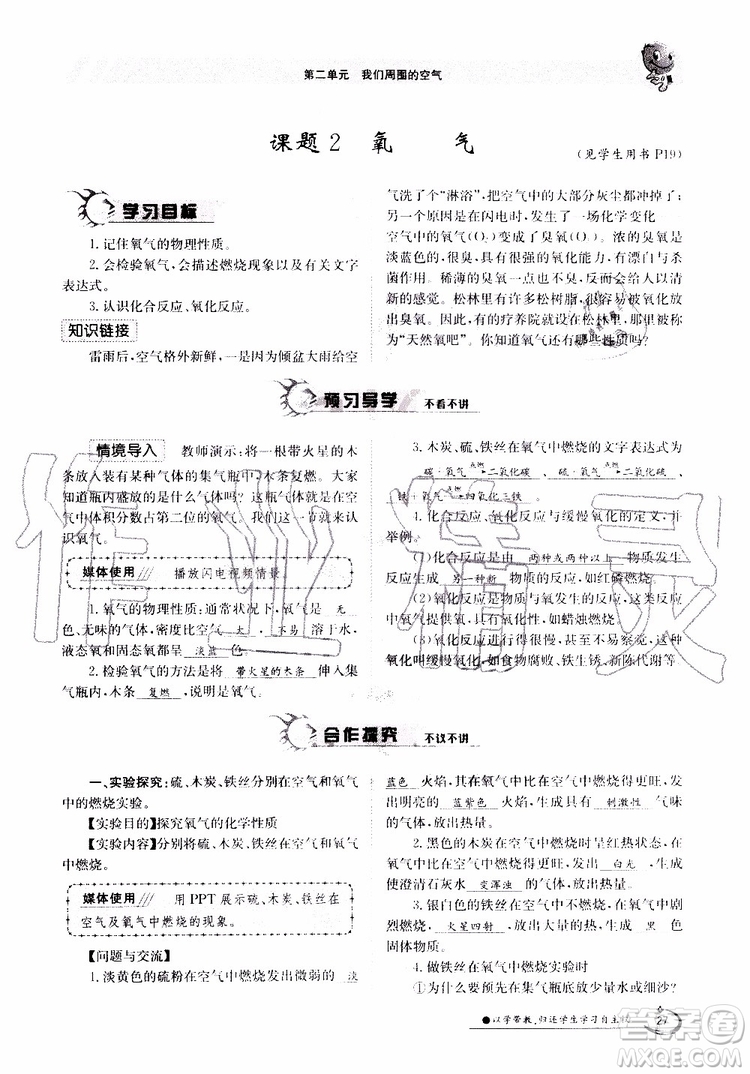 第二单元 我们周围的空气
课题2 氧 气
(见学生用书 P19)
学习目标
1.记住氧气的物理性质。
2.会检验氧气,会描述燃烧现象以及有关文字
表达式。
3.认识化合反应、氧化反应。
知识链接
雷雨后,空气格外新鲜,一是因为倾盆大雨给空
气洗了个“淋浴”,把空气中的大部分灰尘都冲掉了;
另一个原因是在闪电时,发生了一场化学变化——
空气中的氧气(O₂)变成了臭氧(O₃)。浓的臭氧是
淡蓝色的,很臭,具有很强的氧化能力,有漂白与杀
菌作用。稀薄的臭氧一点也不臭,能给人以清
新的感觉。松林里许多松树脂,很容易被氧化而放
出臭氧。有的疗养院就设在松林里,常常被称
为“天然氧吧”。你知道氧气还有哪些性质吗?
预习导学 不看不讲
情境导入 教师演示:将一根带火星的木
条放入装有某种气体的集气瓶中,木条复燃。大家
知道瓶内盛放的是什么气体吗?这瓶气体就是在空
气中体积分数占第二位的氧气。我们这一节就来认
识氧气。
媒体使用 播放闪电视频情景
1.氧气的物理性质:通常状况下,氧气是 无
色、无味的气体,密度比空气 大 , 不易 溶于水,
液态氧和固态氧都呈 淡蓝 色。
2.检验氧气的方法是将 带火星的木条 伸入集
气瓶内,木条 复燃 ,说明是氧气。
3.木炭、硫、铁丝在氧气中燃烧的文字表达式:
碳+氧气 点燃 二氧化碳 、 硫+氧气 点燃 二氧化硫 、
铁+氧气 点燃 四氧化三铁 。
4.化合反应、氧化反应与缓慢氧化的概念,并
举例。
(1)化合反应是由 两种或两种以上 物质发生
反应,生成 另一种新 物质的反应,如红磷燃烧。
(2)氧化反应是物质与氧发生的反应,这类反应
中氧气提供氧,具有氧化性,如蜡烛燃烧。
(3)氧化反应进行得很慢,甚至不易察觉,这种
氧化叫缓慢氧化,如食物腐败、铁生锈、新陈代谢等。
合作探究 不议不讲
一、实验探究:硫、木炭、铁丝分别在空气和氧气
中的燃烧实验。
【实验目的】探究氧气的化学性质
【实验内容】分别将硫、木炭、铁丝在空气和氧气
中燃烧。
媒体使用 用 PPT 展示硫、木炭、铁丝在
空气及氧气中燃烧的现象。
【问题与交流】
1.淡黄色的硫粉在空气中燃烧发出微弱的 淡
蓝色 火焰,在氧气中比空气中燃烧得更旺,发
出明亮的 蓝紫色 火焰,生成有 刺激性 气味
的气体,放出热量。
2.黑色的木炭在空气中燃烧时呈红热状态,在
氧气中比在空气中燃烧更旺,发出 白光 ,生成
使澄清石灰水 变浑浊 的气体,放出热量。
3.银白色的铁丝不能在空气中燃烧,在氧气中剧
烈燃烧, 火星四射 ,放出大量的热,生成 黑 色
固体物质。
4.做铁丝在氧气中燃烧实验时
①为什么要预先在集气瓶底放水或细沙?
●以学带教,归还学生学习自主权
27
作业精灵
答案圈
MXQE.COM